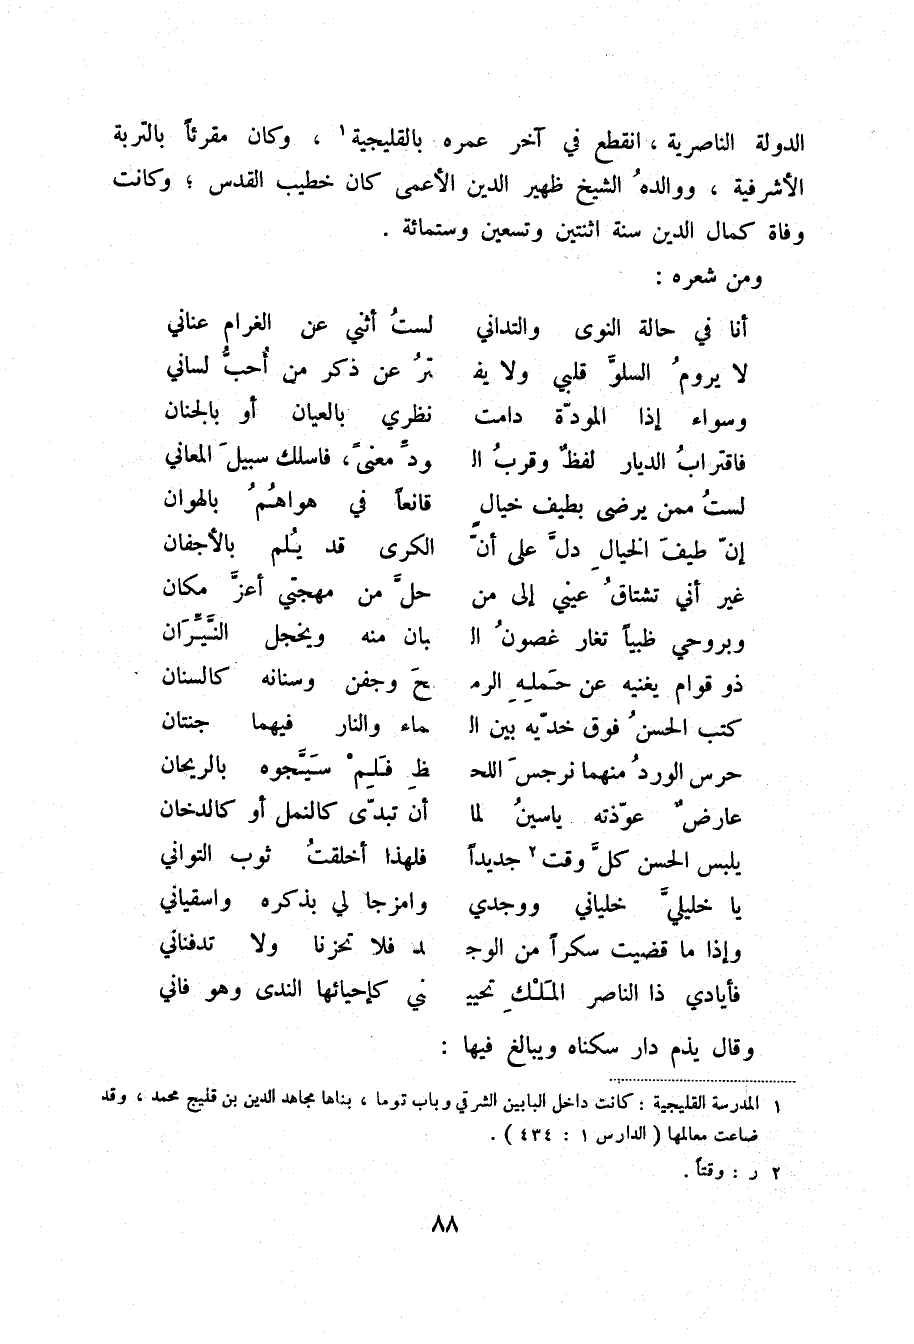 الدولة الناصرية ، انقطع في آخر عمره بالقليجية١ ، وكان مقرئاً بالتربة
الأشرفية ، ووالدهُ الشيخ ظهير الدين الأعمى كان خطيب القدس ؛ وكانت
وفاة كمال الدين سنة اثنتين وتسعين وستمائة .
ومن شعره :
أنا في حالة النوى والتداني لستُ أثني عن الغرام عناني
لا يرومُ السلوَّ قلبي ولا يفـ ـترُ عن ذكر من أُحبُّ لساني
وسواء إذا المودّة دامت نظري بالعيان أو بالجنان
فاقترابُ الديار لفظٌ وقربُ الـ ـودِّ معنىً، فاسلك سبيلَ المعاني
لستُ ممن يرضى بطيف خيالٍ قانعاً في هواهُمُ بالهوان
إنّ طيفَ الخيالِ دلَّ على أنّ الكرى قد يُلم بالأجفان
غير أني تشتاقُ عيني إلى من حلَّ من مهجتي أعزَّ مكان
وبروحي ظبياً تغار غصونُ الـ ـبان منه ويخجل النَّيِّرَان
ذو قوام يغنيه عن حَملِهِ الرمـ ـحَ وجفن وسنانه كالسنان
كتب الحسنُ فوق خدّيه بين الـ ـماء والنار فيهما جنتان
حرس الوردُ منهما نرجسَ اللحـ ـظِ فَلِمْ سَيَّجوه بالريحان
عارضٌ عوّذته ياسينُ لما أن تبدّى كالنمل أو كالدخان
يلبس الحسن كلَّ وقت٢ جديداً فلهذا أخلقتُ ثوب التواني
يا خليليَّ خلياني ووجدي وامزجا لي بذكره واسقياني
وإذا ما قضيت سكراً من الوجـ ـد فلا تحزنا ولا تدفناني
فأيادي ذا الناصر المَلْكِ تحييـ ـني كإحيائها الندى وهو فاني
وقال يذم دار سكناه ويبالغ فيها :
١ المدرسة القليجية : كانت داخل البابين الشرقي وباب توما ، بناها مجاهد الدين بن قليج محمد ، وقد
ضاعت معالمها ( الدارس ١ : ٤٣٤ ) .
٢ ر : وقتاً .
٨٨